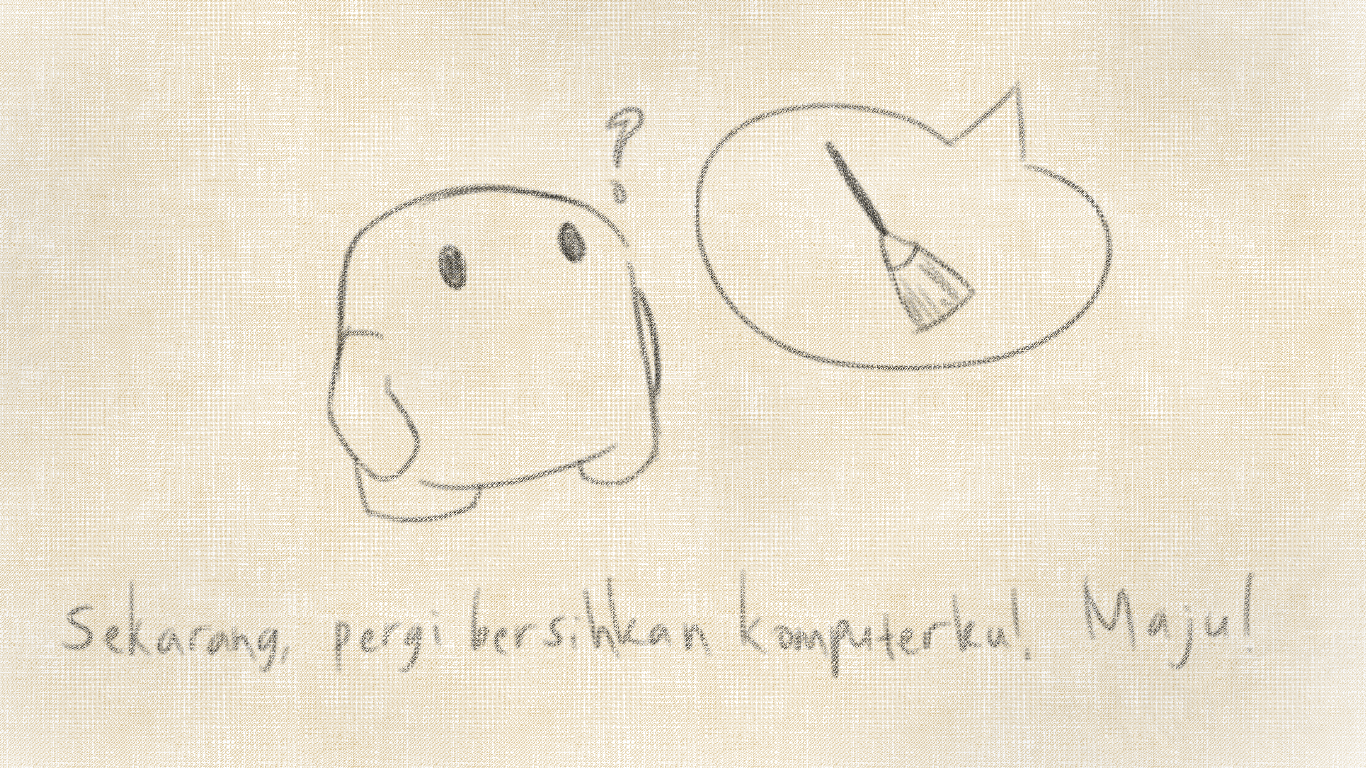 ?
Sekarang, pergi bersihkan komputerku! Maju!